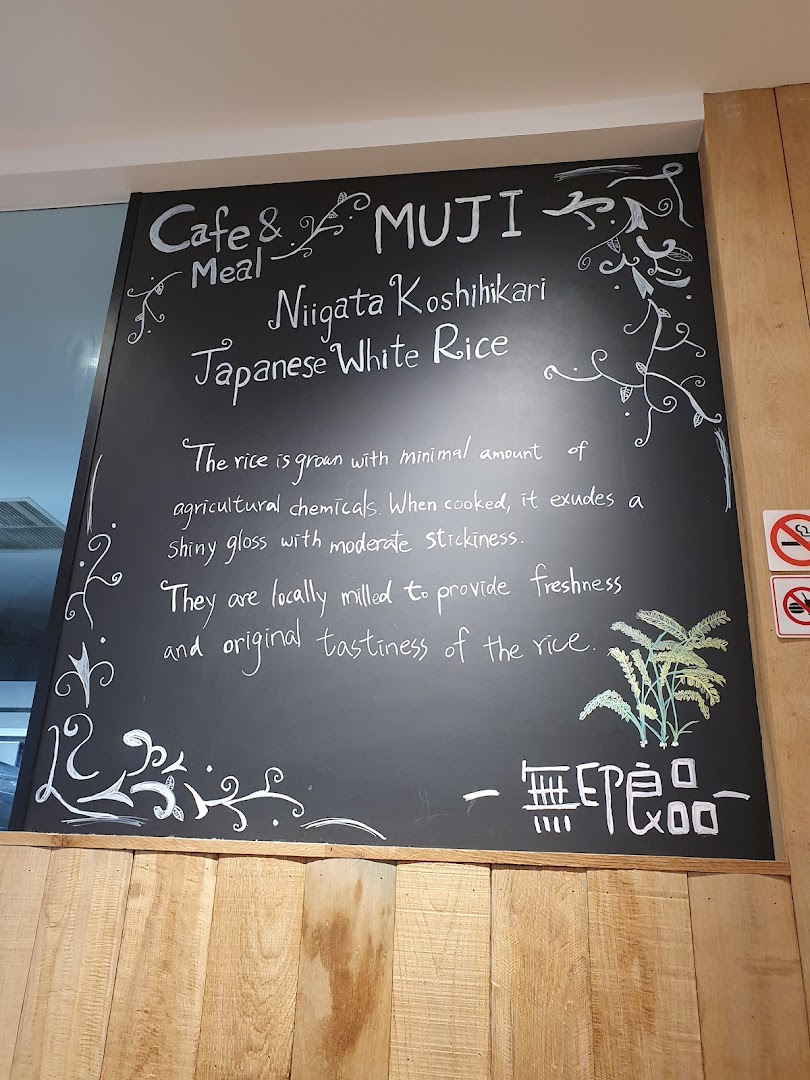 Cafe & MUJI
Meal
Niigata Koshihikari
Japanese White Rice
The rice is grown with minimal amount of
agricultural chemicals. When cooked, it exudes a
shiny gloss with moderate stickiness.
They are locally milled to provide freshness
and original tastiness of the rice.
- 無印良品 -